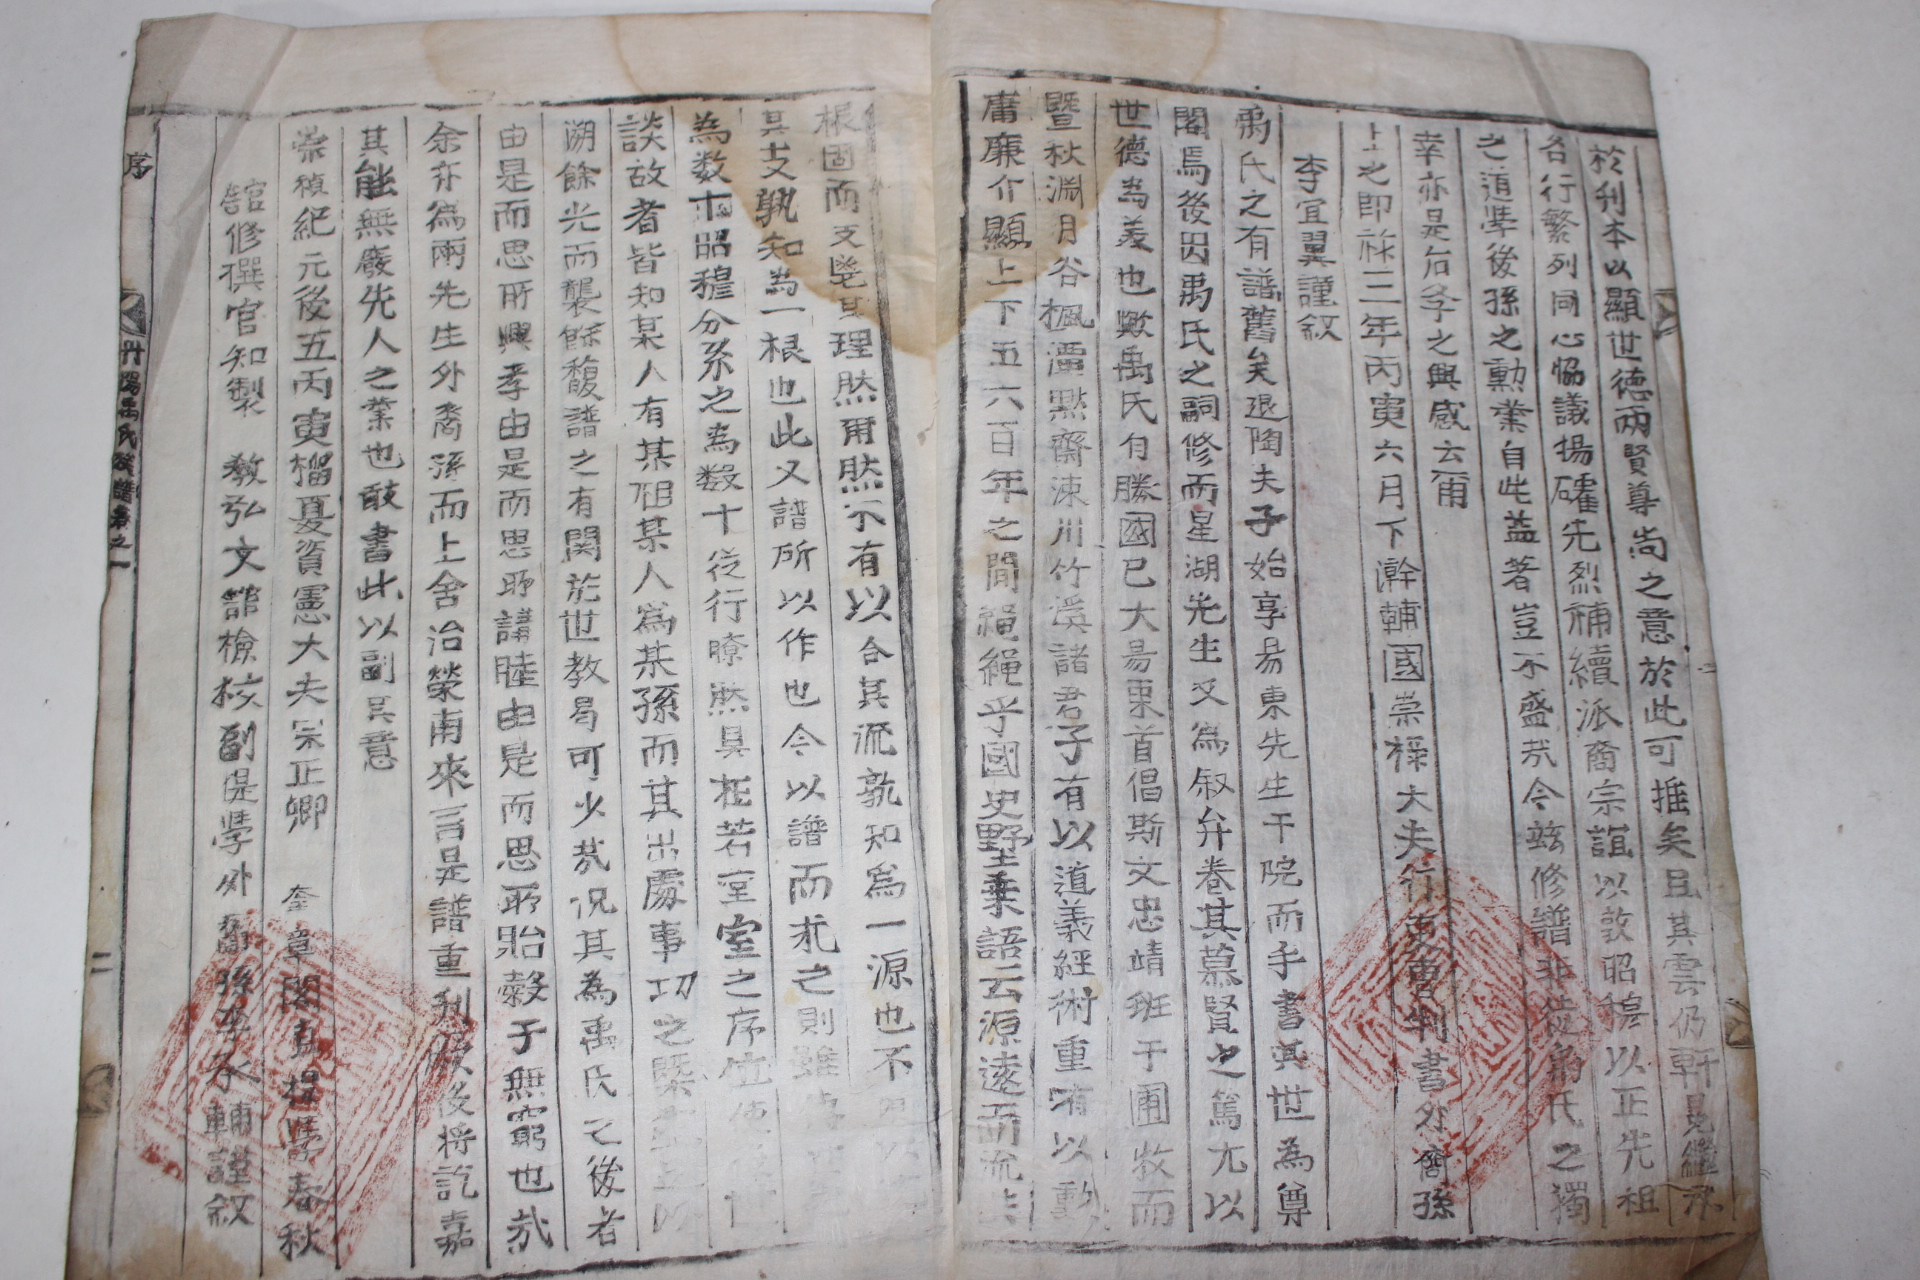 於刋本以顯世德兩賢尊尚之意於此可推矣且其雲仍軒冕繼承
各行繁列同心恊議揚礭先烈補續派裔宗誼以敦昭穆以正先祖
之道學後孫之勳業自此益著豈不盛㢤今玆修譜非徒禹氏之獨
幸亦是后孝之興感云爾
上之卽祚三年丙寅六月下澣輔國崇祿大夫行吏曺判書外裔孫
李宜翼謹敘
禹氏之有譜舊矣退陶夫子始享易東先生于院而手書其世為尊
閣焉後因禹氏之嗣修而星湖先生又爲叙弁卷其慕賢之篤尤以
世德為羙也歟禹氏自勝國已大易東首倡斯文忠靖班于圃牧而
暨秋淵月谷楓潭默齋涑川竹溪諸君子有以道義經術重有以勳
庸廉介顯上下五六百年之間繩繩乎國史野乗語云源遠而流
根固而支 其理然爾然不有以合其流孰知爲一源也不
其支孰知為一根也此又譜所以作也今以譜而求之則雖
為数十昭穆分系之為数十從行瞭然具在若一室之序
談故者皆知某人有某祖某人爲某孫而其出處事功之
溯餘光而襲餘馥譜之有関於世教曷可少㢤况其為禹氏之後者
由是而思所興孝由是而思所講睦由是而思所貽穀于無窮也㢤
余亦爲兩先生外裔孫而上舍治榮甫來言是譜重刋 後將訖嘉
其能無廢先人之業也敢書此以副其意
崇禎紀元後五丙寅榴夏資憲大夫宗正卿 奎章閣直提學春秋
舘修撰官知製 教弘文舘檢校副提學外裔孫李承輔謹敘
序
丹陽禹氏族譜卷之一
二